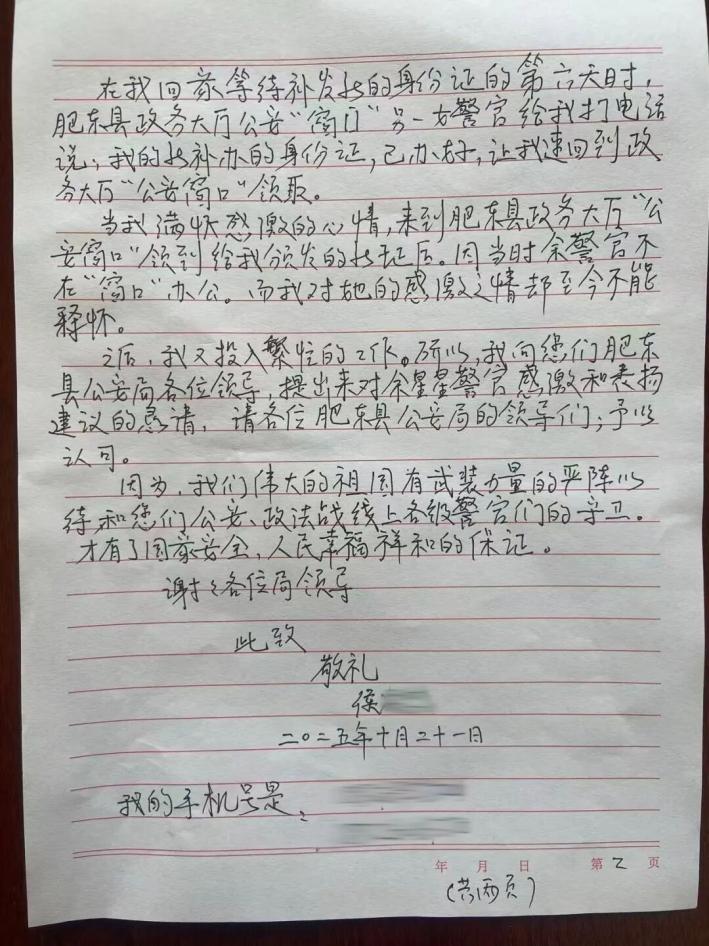 在我回家等待补发的身份证的第六天时，
肥东县政务大厅公安“窗口”另一女警官给我打电话
说，我的补办的身份证，已办好，让我速回到政
务大厅“公安窗口”领取。
当我满怀感激的心情，来到肥东县政务大厅“公
安窗口”领到给我颁发的证后。因当时余警官不
在“窗口”办公。而我对她的感激之情却至今不能
释怀。
之后，我又投入繁忙的工作。所以，我向您们肥东
县公安局各位领导，提出来对余星星警官感激和表扬
建议的恳请，请各位肥东县公安局的领导们；予以
认可。
因为，我们伟大的祖国有武装力量的严阵以
待和您们公安、政法战线上各级警官们的守卫。
才有了国家安全，人民幸福祥和的保证。
谢谢各位局领导
此致
敬礼
侯
二〇二五年十月二十一日
我的手机号是：
年 月 日 第 2 页
（共两页）